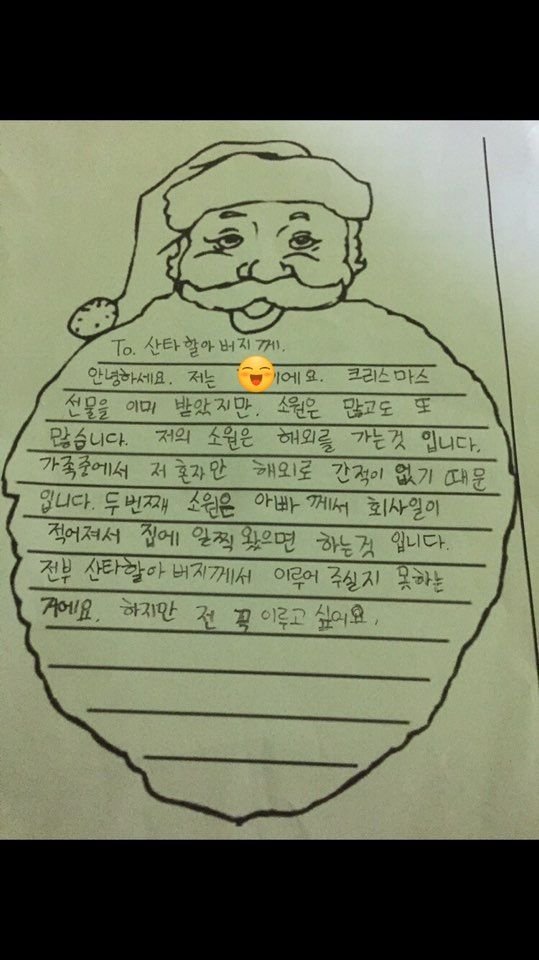 To. 산타할아버지께.
안녕하세요. 저는 이에요. 크리스마스
선물을 이미 받았지만. 소원은 많고도 또
많습니다. 저의 소원은 해외를 가는것 입니다.
가족중에서 저 혼자만 해외로 간적이 없기 때문
입니다. 두번째 소원은 아빠께서 회사일이
적어져서 집에 일찍 왔으면 하는것 입니다.
전부 산타할아버지께서 이루어 주실지 못하는
거에요. 하지만 전 꼭 이루고 싶어요.